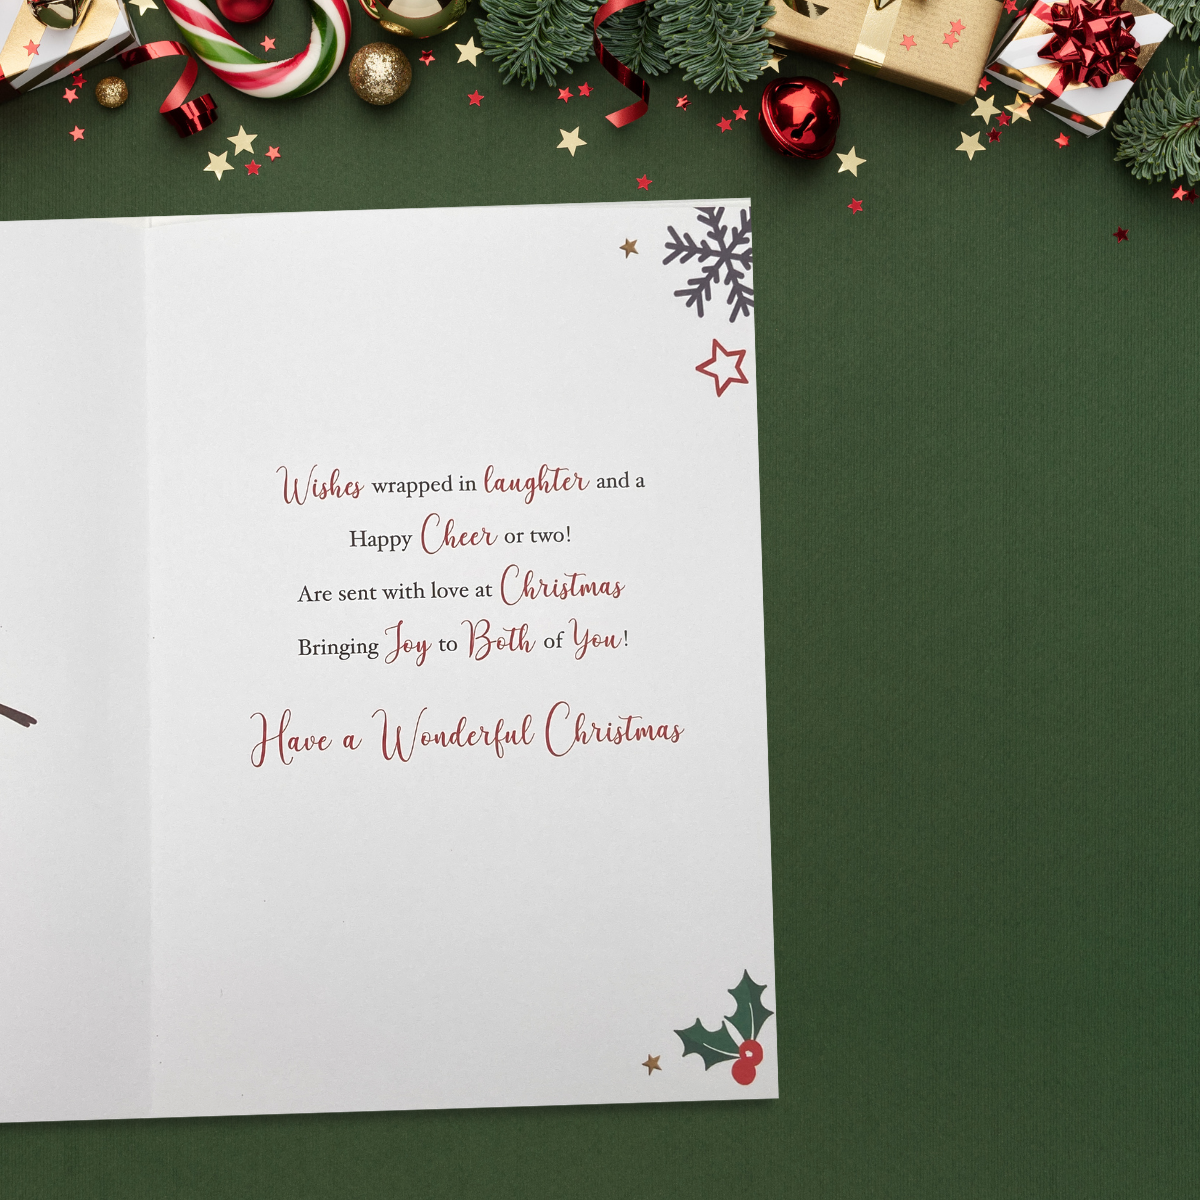 Wishes wrapped in laughter and a
Happy Cheer or two!
Are sent with love at Christmas
Bringing Joy to Both of You!
Have a Wonderful Christmas